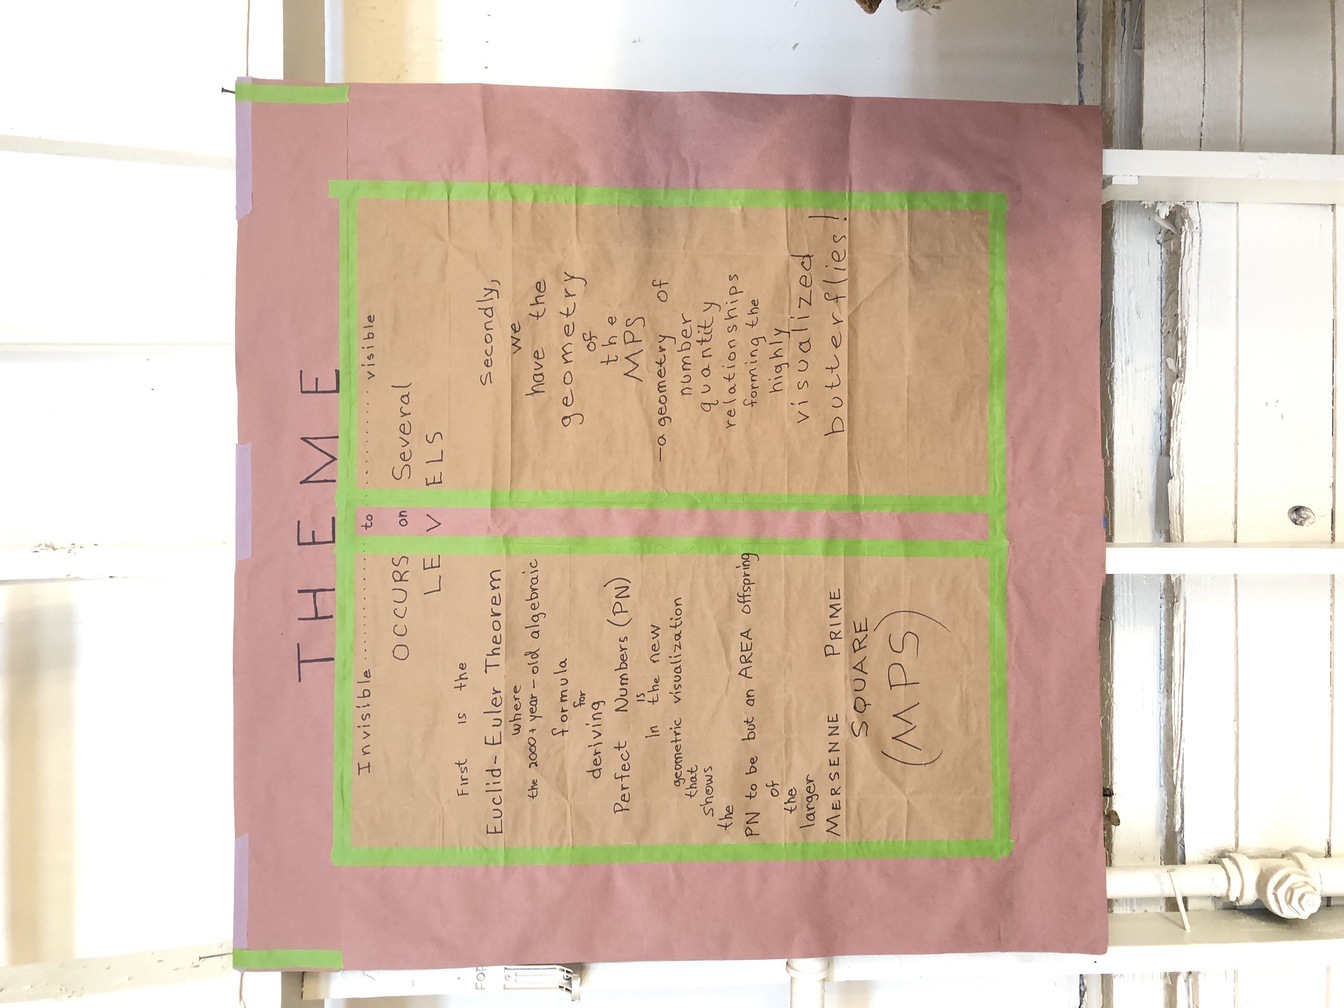 THEME
Invisible .......... to .......... visible
OCCURS on Several
LEVELS
First is the
Euclid-Euler Theorem
where
the 2000+ year-old algebraic
formula
for
deriving
Perfect Numbers (PN)
is
In the new
geometric visualization
that
shows
the
PN to be but an AREA offspring
of
the
larger
MERSENNE PRIME
SQUARE
(MPS)
Secondly,
we
have the
geometry
of
the
MPS
-a geometry of
number
quantity
relationships
forming the
highly
visualized
butterflies!
FOR